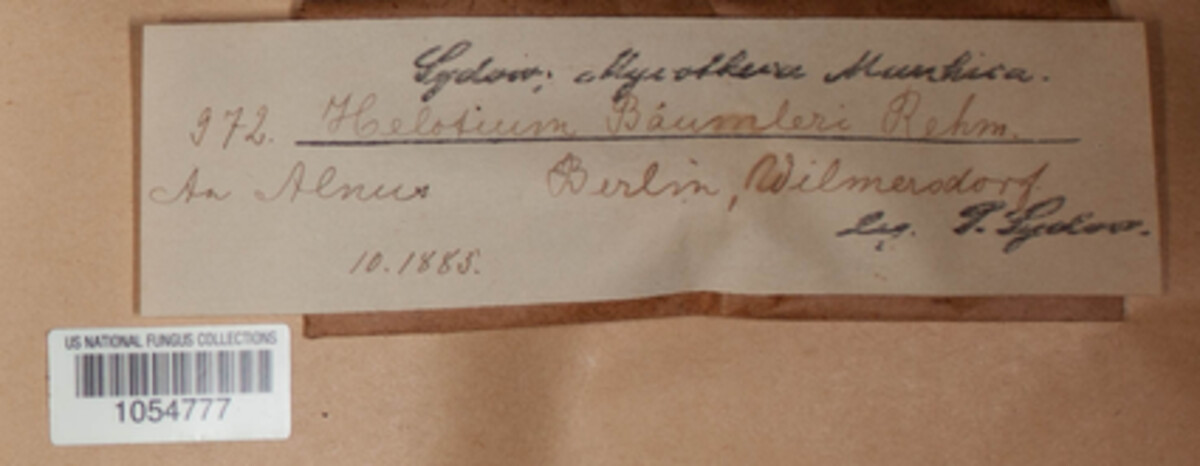 Sydow, Mycotheca Marchica.
972. Helotium Bäumleri Rehm.
An Alnus Berlin, Wilmersdorf
Leg. P. Sydow.
10.1885.
US NATIONAL FUNGUS COLLECTIONS
1054777